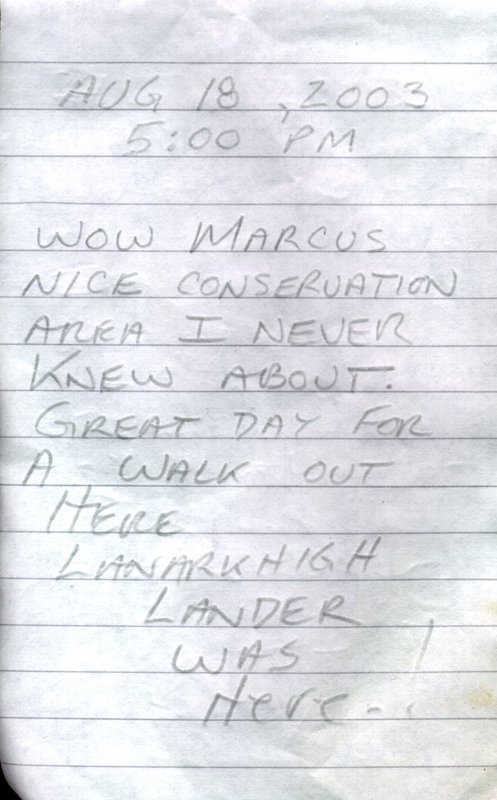 AUG 18 , 2003
5:00 PM
WOW MARCUS
NICE CONSERVATION
AREA I NEVER
KNEW ABOUT.
GREAT DAY FOR
A WALK OUT
HERE
LANARKHIGH
LANDER
WAS
Here..!